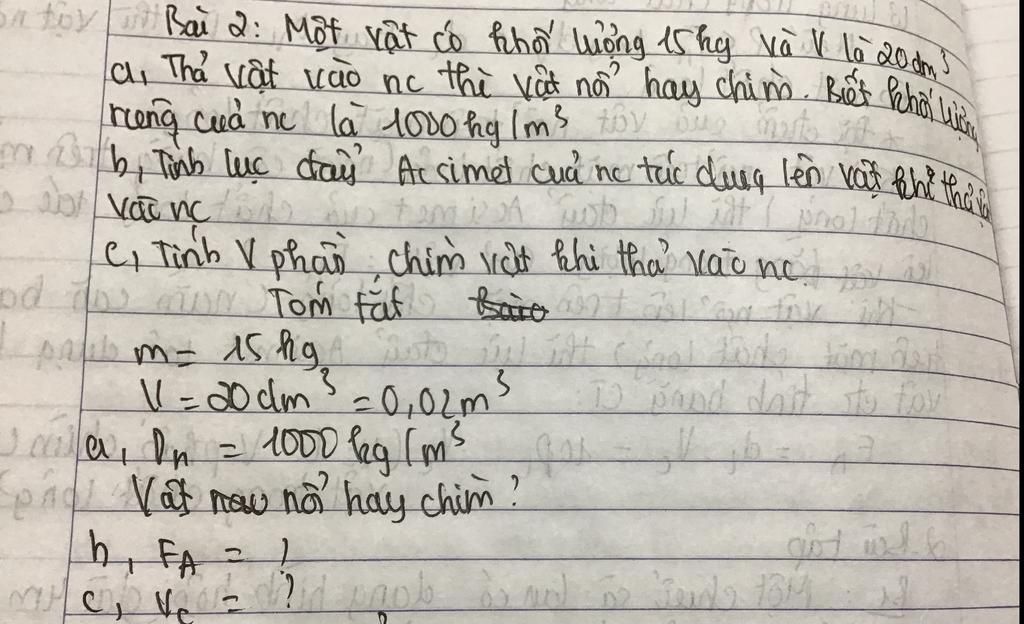 Bài 2: Một vật có khối lượng 15kg và V là 20dm³
a, Thả vật vào nc thì vật nổi hay chìm. Biết khối lượng
riêng của nc là 1000kg/m³
b, Tính lực đẩy Acsimet của nc tác dụng lên vật khi thả vào
vào nc
c, Tính V phần chìm vật khi thả vào nc.
Tóm tắt
m = 15kg
V = 20dm³ = 0,02m³
a, Dn = 1000kg/m³
Vật nổi hay chìm?
b, FA = ?
c, Vc = ?